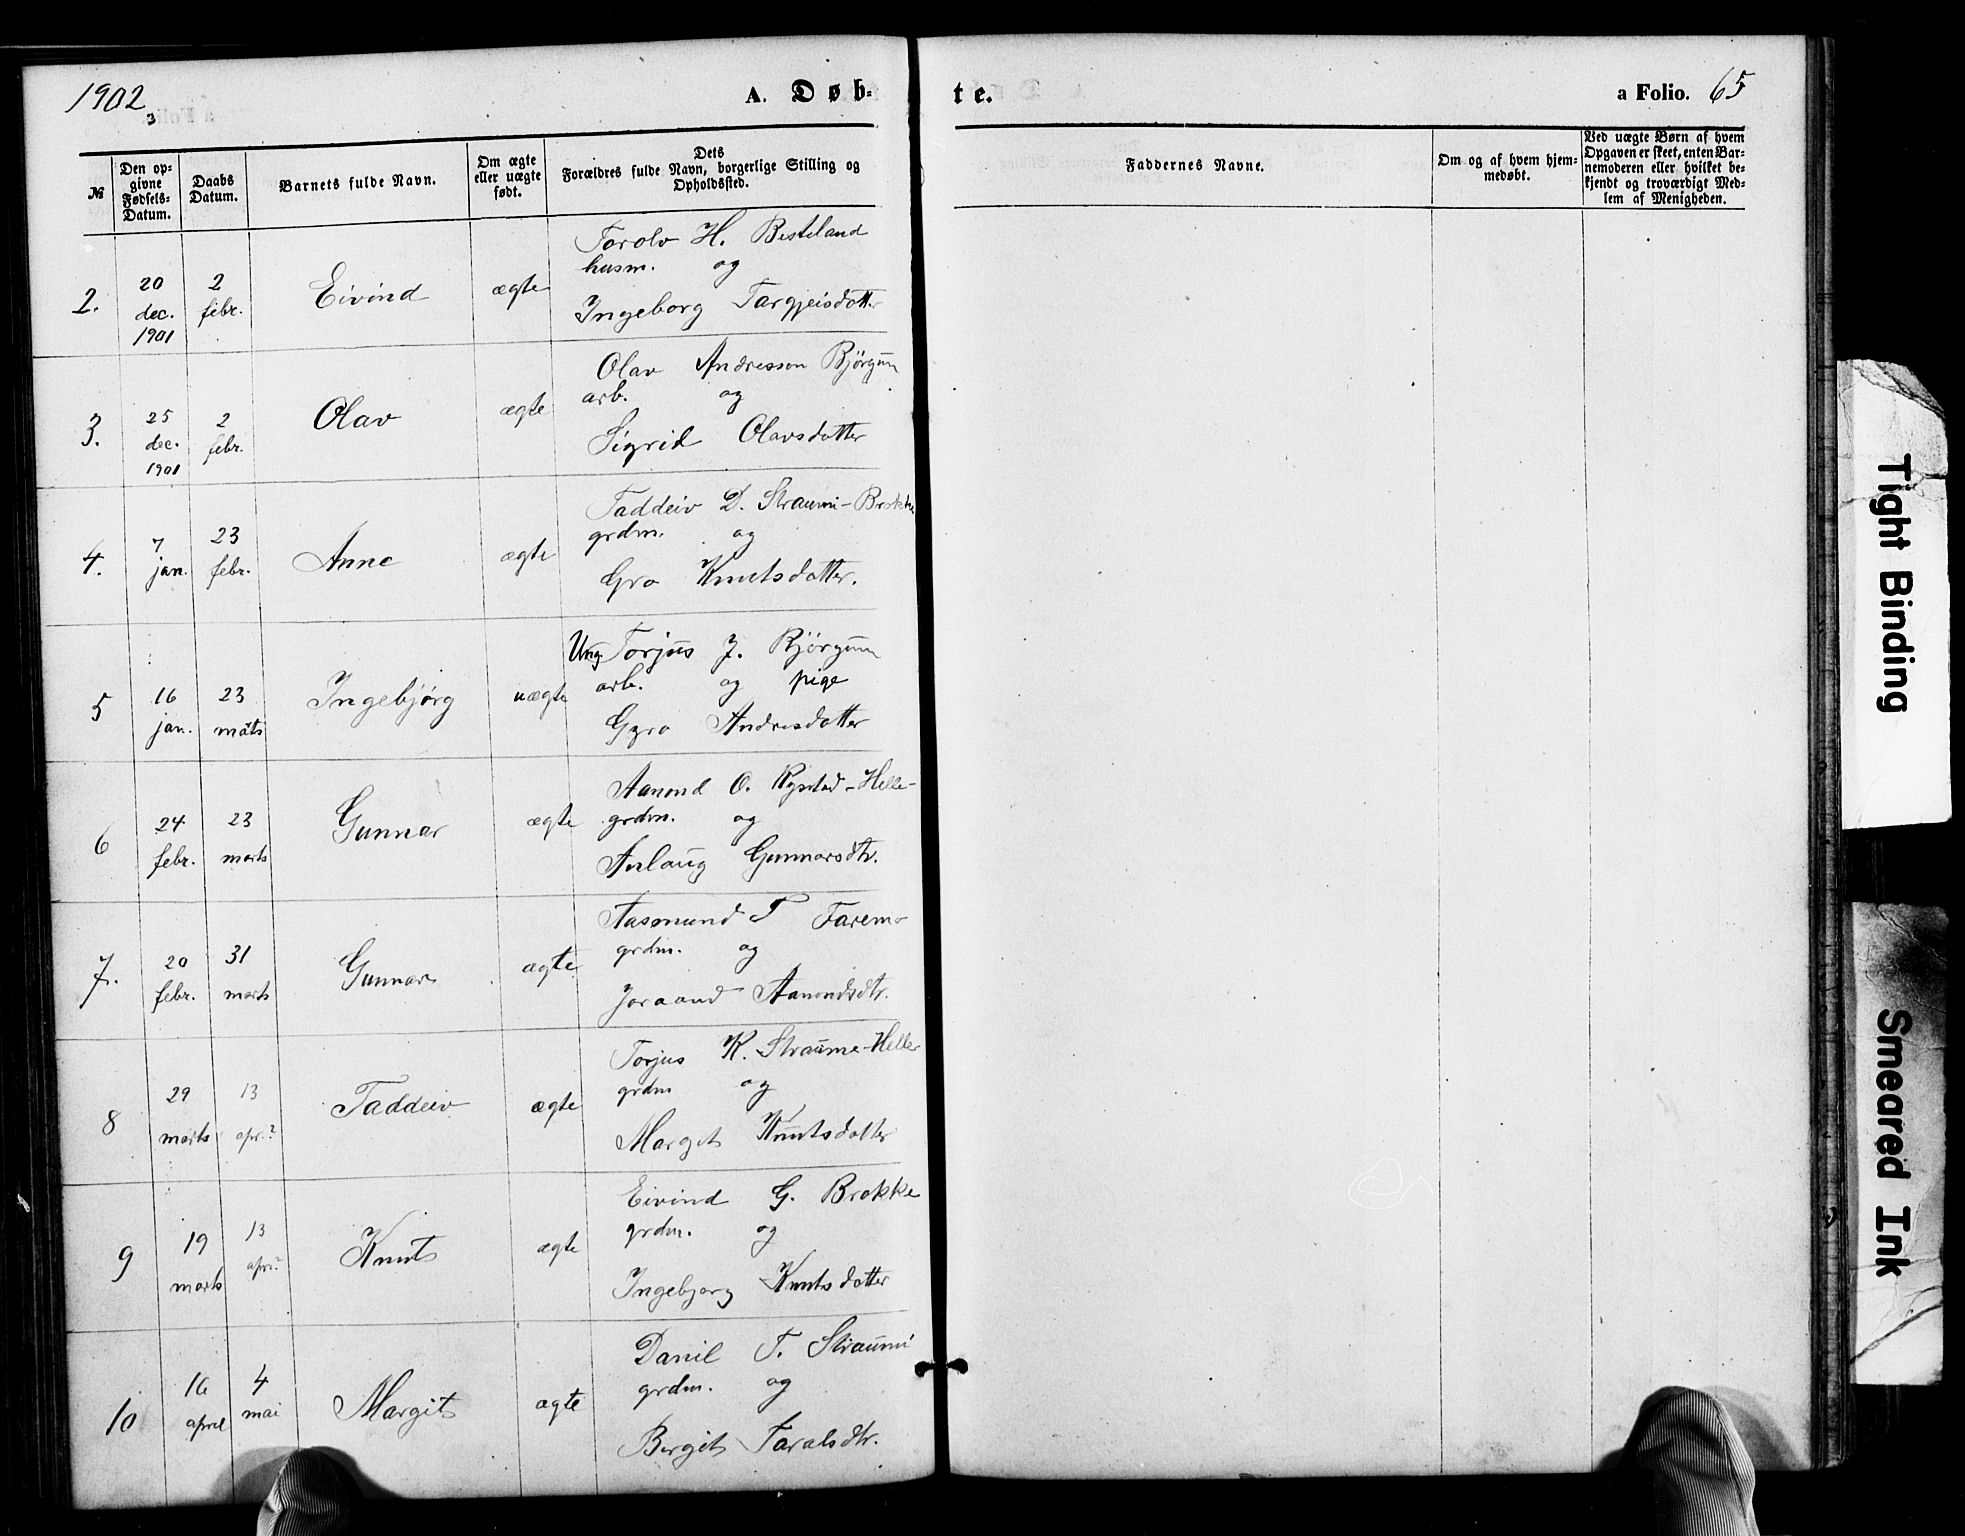 1902
3
A. Døb-
te.
a Folio. 65
№
Den op-
givne
Fødsels-
Datum.
Daabs
Datum.
Barnets fulde Navn.
Om ægte
eller uægte
født.
Dets
Forældres fulde Navn, borgerlige Stilling og
Opholdssted.
Faddernes Navne.
Om og af hvem hjem-
medøbt.
Ved uægte Børn af hvem
Opgaven er skeet, enten Bar-
nemoderen eller hvilket be-
kjendt og troværdigt Med-
lem af Menigheden.
2.
20
dec.
1901
2
febr.
Eivind
ægte
Torolv H. Besteland
husm. og
Ingeborg Targjeisdotter
3.
25
dec.
1901
2
febr.
Olav
ægte
Olav Andresson Bjørgum
arb. og
Sigrid Olavsdotter
4.
7
jan.
23
febr.
Anne
ægte
Taddeiv D. Straumi-Brokke
grdm. og
Gro Knutsdotter.
5
16
jan.
23
marts
Ingebjørg
uægte
Ung Torjus J. Bjørgum
arb. og pige
Gyro Andresdotter
6
24
febr.
23
marts
Gunnar
ægte
Aanond O. Rysstad-Helle-
grdm. og
Anlaug Gunnarsdtr.
7.
20
febr.
31
marts
Gunnar
ægte
Aasmund T Faremo
grdm. og
Joraand Aanondsdtr.
8
29
marts
13
apr.
Taddeiv
ægte
Torjus K. Straume-Helle
grdm og
Margit Knutsdotter
9
19
marts
13
apr.
Knut
ægte
Eivind G. Brokke
grdm. og
Ingebjorg Knutsdotter
10
16
april
4
mai
Margit
ægte
Danil T. Straumi
grdm. og
Bergit Taralsdtr.
Tight Binding
Smeared Ink